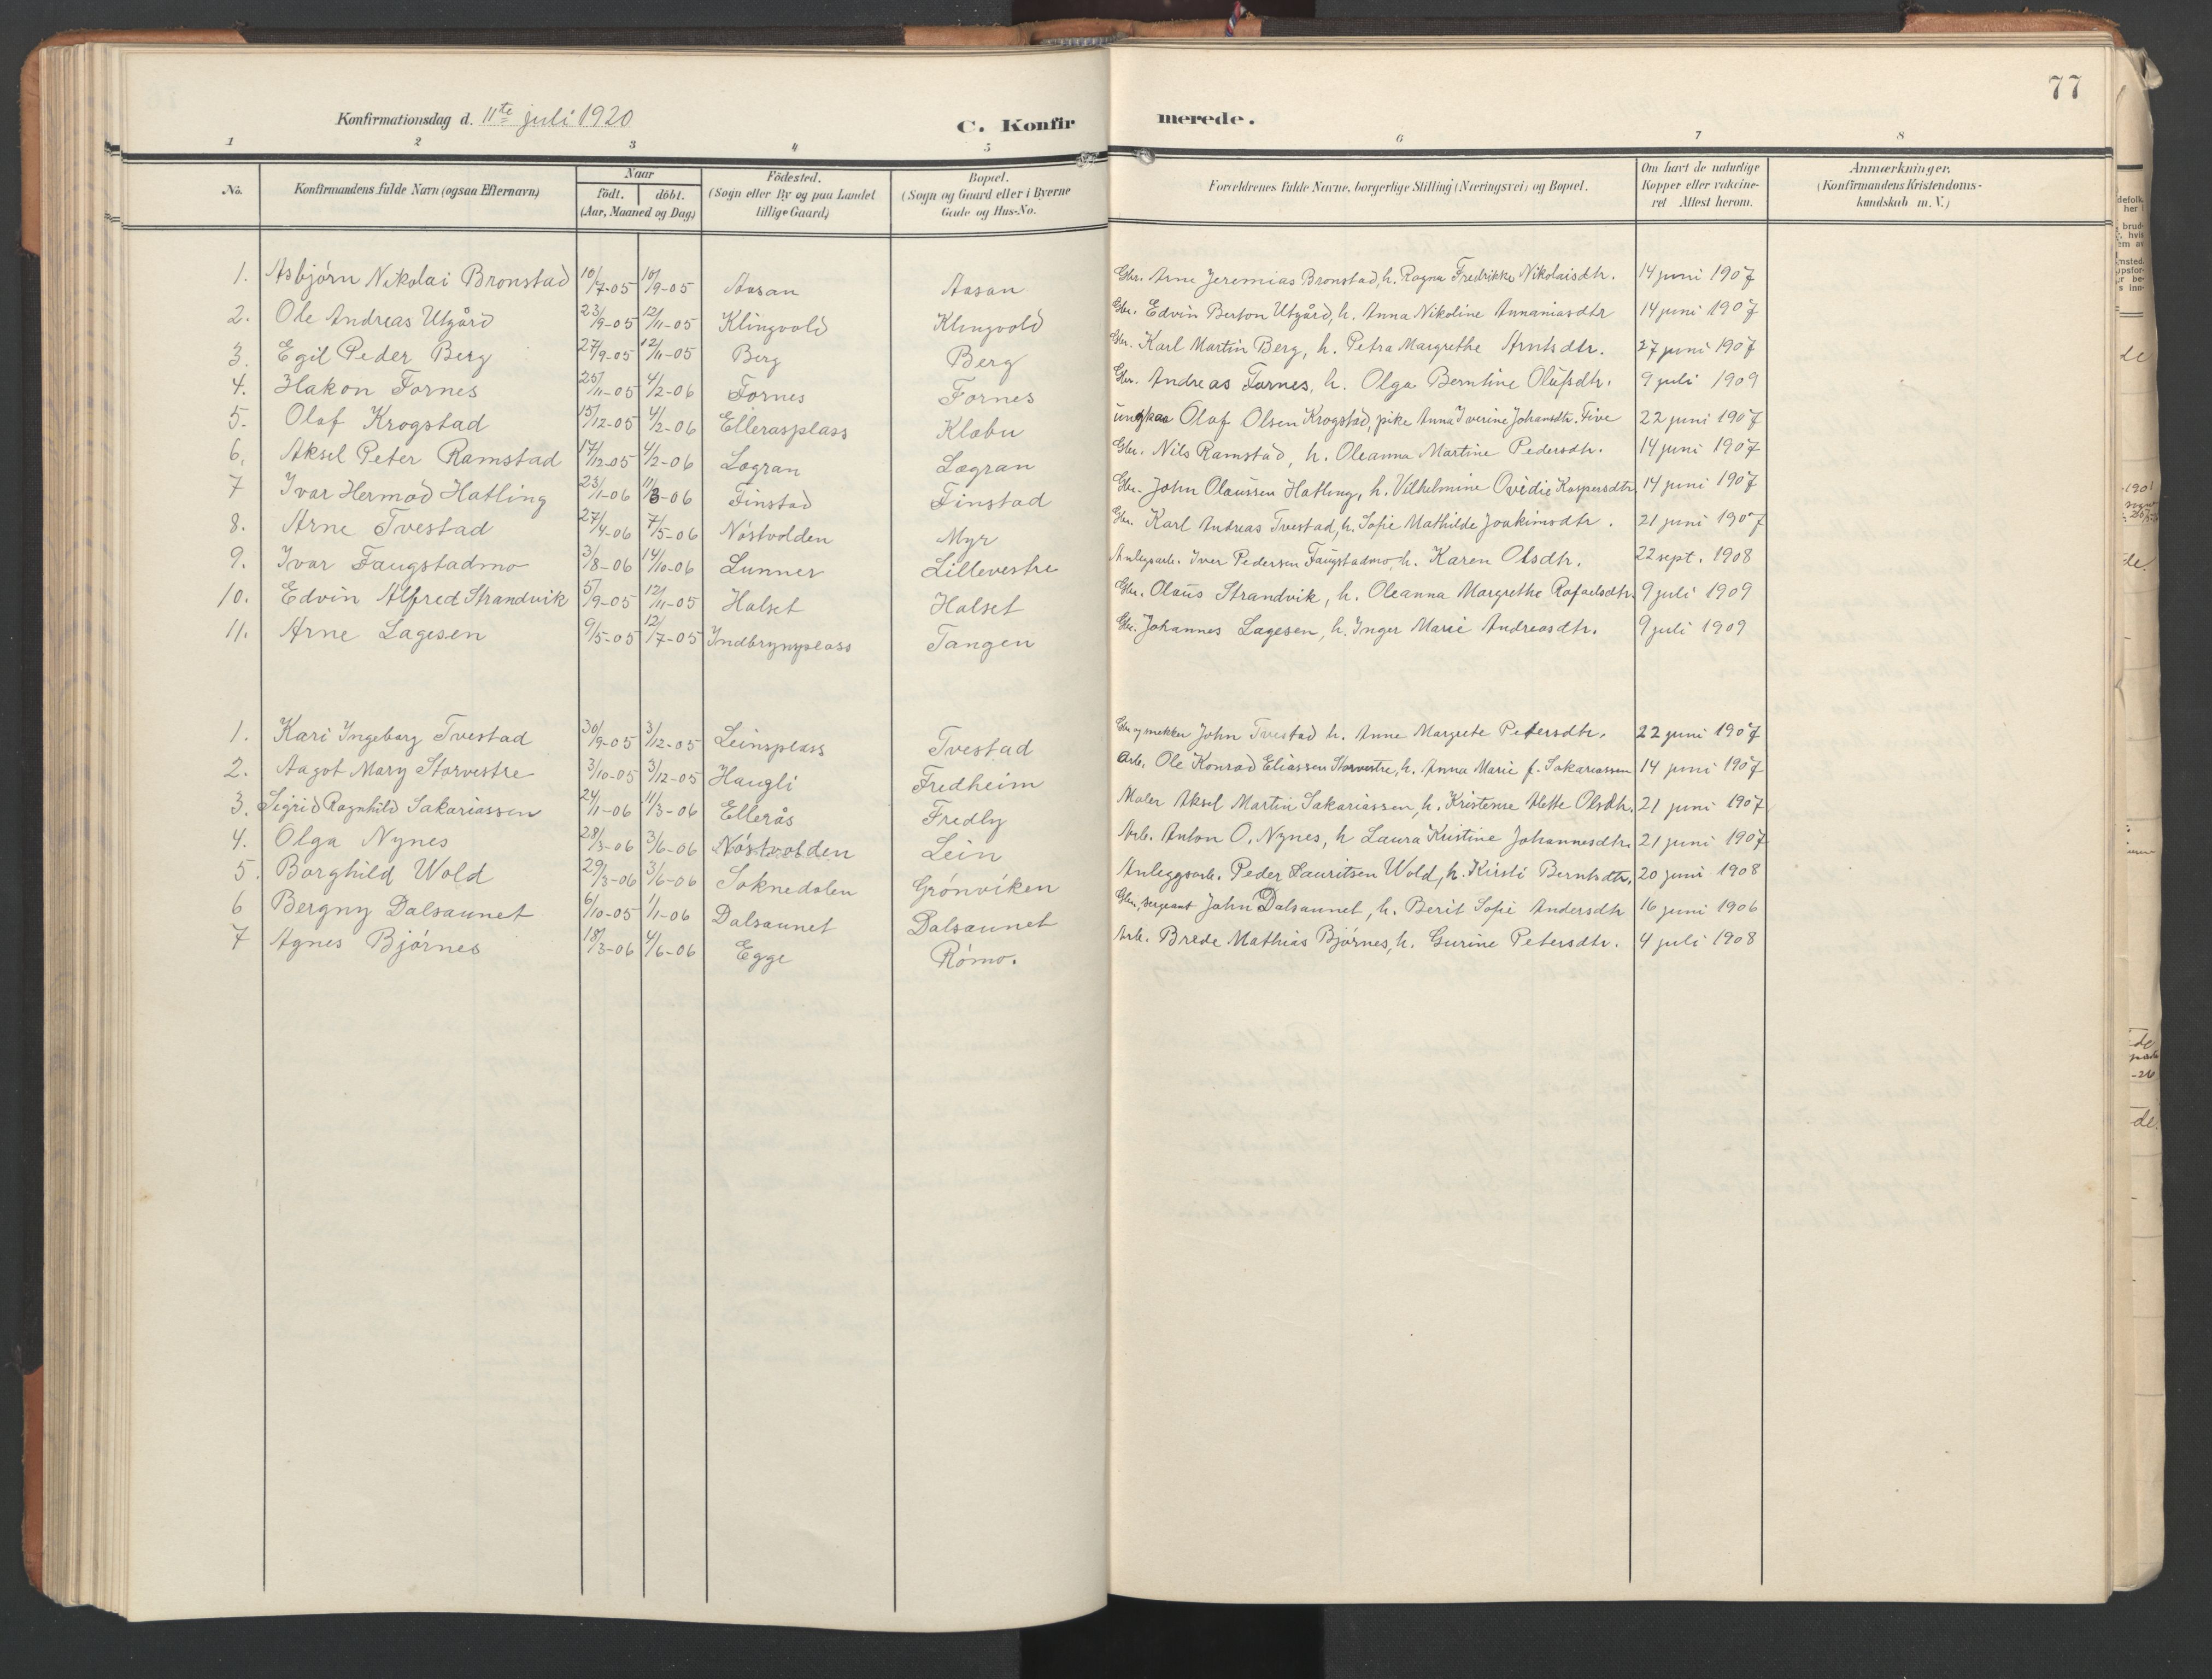 77
Konfirmationsdag d. 11te juli 1920
C. Konfirmerede.
1 2 3 4 5 6 7 8
No. Konfirmandens fulde Navn (ogsaa Efternavn) Naar födt. döbt. (Aar, Maaned og Dag) Födested. (Sogn eller By og paa Landet tillige Gaard) Bopæl. (Sogn og Gaard eller i Byerne Gade og Hus-No. Forældrenes fulde Navne, borgerlige Stilling (Næringsvei) og Bopæl. Om havt de naturlige Kopper eller vakcineret Attest herom. Anmærkninger. (Konfirmandens Kristendomskundskab m. V.)
1. Asbjörn Nikolai Bronstad 10/7-05 10/9-05 Aasan Aasan Gbr. Arne Jeremias Bronstad, h. Ragna Fredrikke Nikolaisdtr. 14 juni 1907
2. Ole Andreas Utgård 23/9-05 12/11-05 Klingvold Klingvold Gbr. Edvin Berton Utgård, h. Anna Nikoline Annaniasdtr 14 juni 1907
3. Egil Peder Berg 27/9-05 12/11-05 Berg Berg Gbr. Karl Martin Berg, h. Petra Margrethe Arntsdtr. 27 juni 1907
4. Hakon Fornes 25/11-05 4/2-06 Fornes Fornes Gbr. Andreas Fornes, h. Olga Berntine Olüfsdtr. 9 juli 1909
5. Olaf Krogstad 15/12-05 4/2-06 Ellerasplass Klæbu ungkaa Olaf Olsen Krogstad, pike Anna Iverine Johansdtr. Five 22 juni 1907
6. Aksel Peter Ramstad 17/12-05 4/2-06 Lægran Lægran Gbr. Nils Ramstad, h. Oleanna Martine Pedersdtr. 14 juni 1907
7 Ivar Hermod Hatling 23/1-06 11/3-06 Finstad Finstad Gbr. John Olaussen Hatling, h. Vilhelmine Ovidie Kaspersdtr. 14 juni 1907
8. Arne Tvestad 27/4-06 7/5-06 Nóstvolden Myr Gbr. Karl Andreas Tvestad, h. Sofie Mathilde Joakimsdtr. 21 juni 1907
9. Ivar Faugstadmo 3/8-06 14/10-06 Lunner Lillevestre Anlegsarb. Iver Pedersen Faugstadmo, h. Karen Olsdtr. 22 sept. 1908
10. Edvin Alfred Strandvik 5/9-05 12/11-05 Halset Halset Gbr. Olaus Strandvik, h. Oleanna Margrethe Rafaelsdtr. 9 juli 1909
11. Arne Lagesen 9/5-05 12/7-05 Indbrynyplass Tangen Gbr. Johannes Lagesen, h. Inger Marie Andreasdtr. 9 juli 1909
1. Kari Ingeborg Tvestad 30/9-05 3/12-05 Leinsplass Tvestad Gbr og John Tvestad h. Anne Margrete Petersdtr. 22 juni 1907
2. Aagot Mary Storvestre 3/10-05 3/12-05 Haugli Fredheim Arb. Ole Konrad Eliassen Storvestre, h. Anna Marie f. Sakariassen 14 juni 1907
3. Sigrid Ragnhild Sakariassen 24/1-06 11/3-06 Ellerås Fredly Maler Aksel Martin Sakariassen, h. Kristense Alette Olsdtr. 21 juni 1907
4. Olga Nynes 28/3-06 3/6-06 Nóstvolden Lein Arb. Anton O. Nynes, h Laura Kristine Johannesdtr. 21 juni 1907
5. Borghild Wold 29/3-06 3/6-06 Soknedalen Grónviken Anleggsarb. Peder Lauritsen Wold, h. Kirsti Berntsdtr. 20 juni 1908
6 Bergny Dalsaunet 6/10-05 1/1-06 Dalsaunet Dalsaunet Gbr, Sergeant John Dalsaunet, h. Berit Sofie Andersdtr 16 juni 1906
7 Agnes Bjórnes 18/3-06 4/6-06 Egge Rómo. Arb. Brede Mathias Bjórnes, h. Gurine Petersdtr. 4 juli 1908